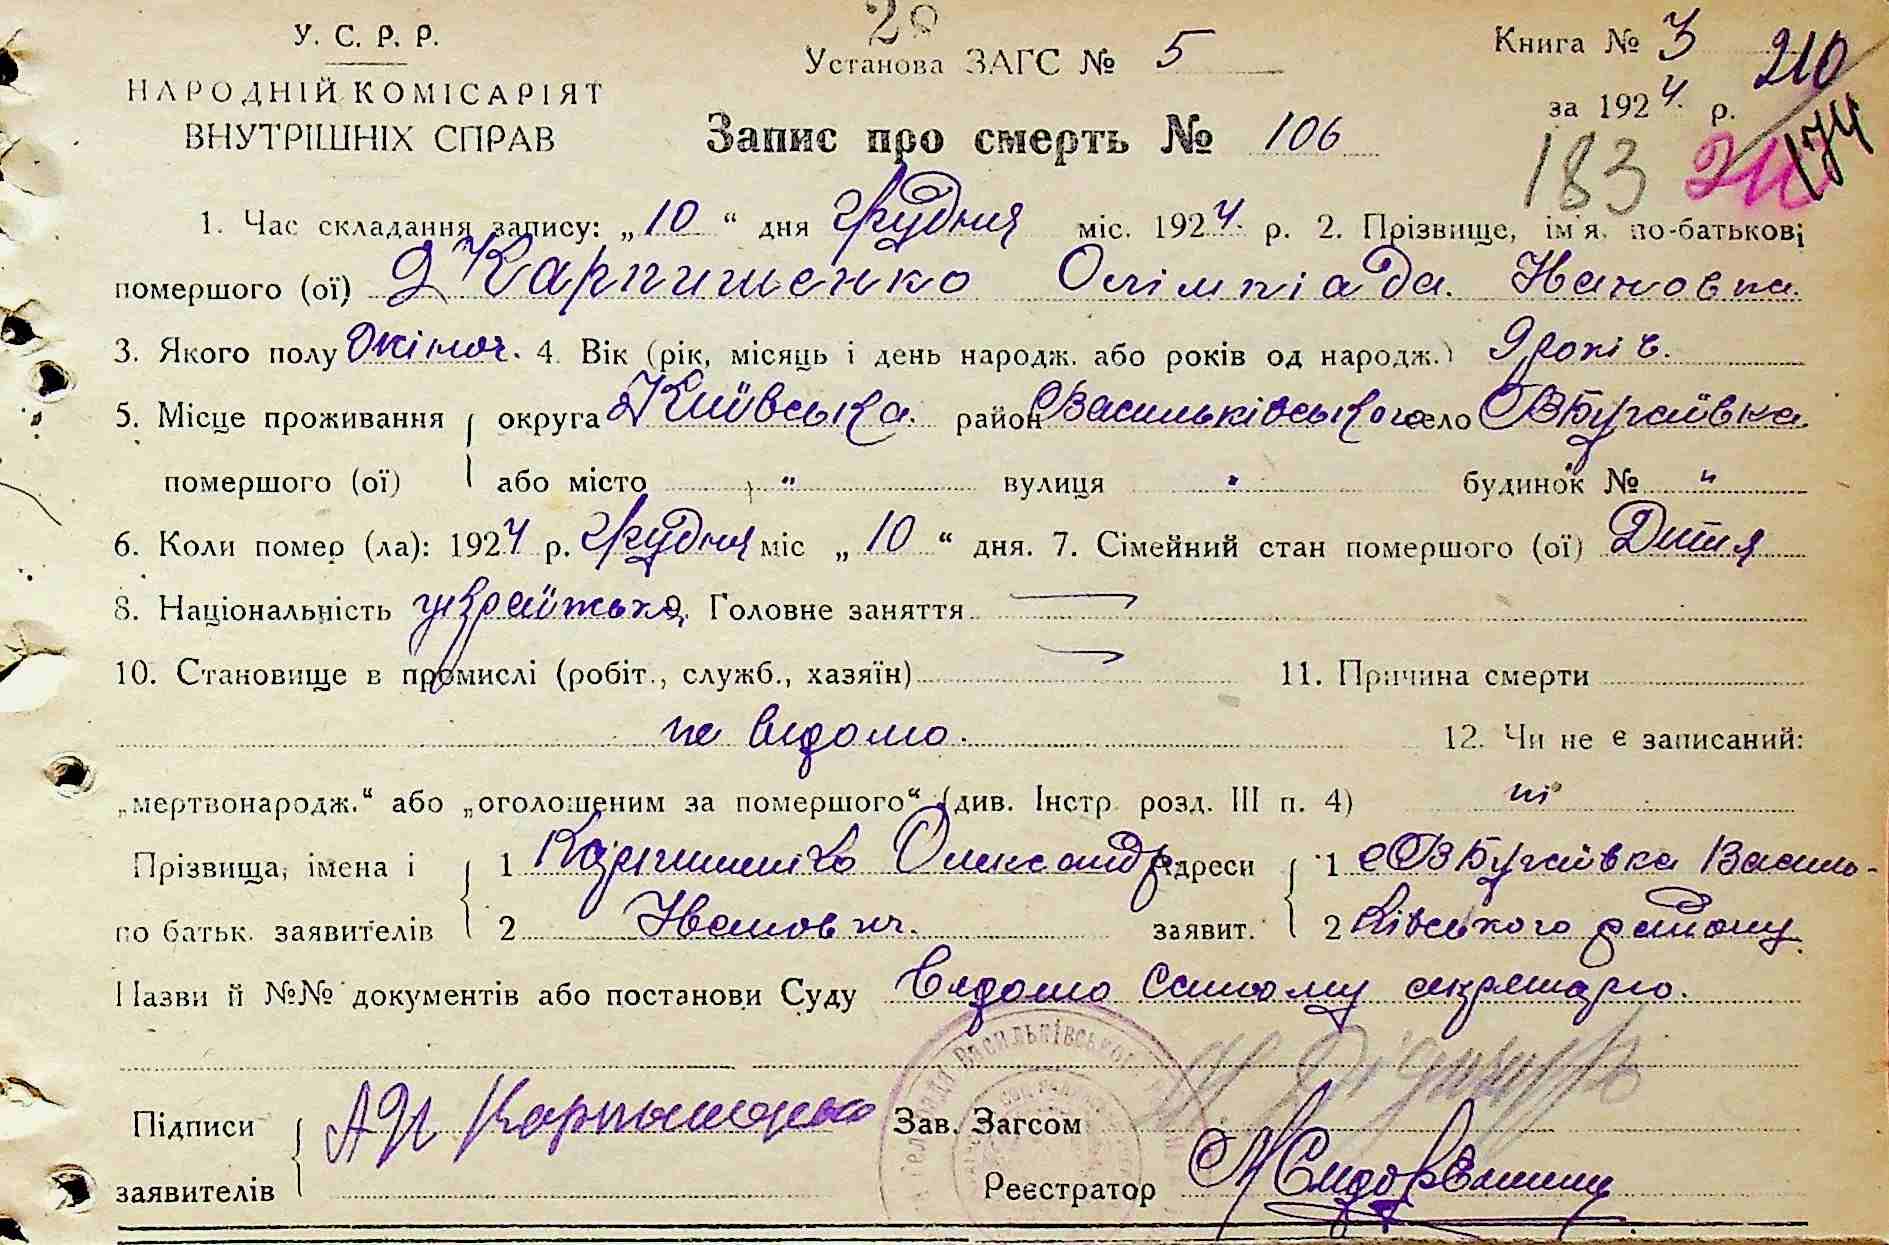 20
У. С. Р. Р.
НАРОДНІЙ КОМІСАРІЯТ
ВНУТРІШНІХ СПРАВ
Установа ЗАГС № 5
Книга № 3
210
за 1924 р.
174
183
211
Запис про смерть № 106
1. Час складання запису: „10“ дня Грудня міс. 1924 р. 2. Прізвище, імя, по-батькові
помершого (ої) Карпишенко Олімпіада Івановна.
3. Якого полу жіноч. 4. Вік (рік, місяць і день народж. або років од народж.) 9 років.
5. Місце проживання округа Київська район Васильківського село Бугаївка
помершого (ої) або місто „ вулиця „ будинок № „
6. Коли помер (ла): 1924 р. Грудня міс „10“ дня. 7. Сімейний стан помершого (ої) Дитя
8. Національність українська 9. Головне заняття
10. Становище в промислі (робіт., служб., хазяїн) 11. Причина смерти
не відомо. 12. Чи не є записаний:
„мертвонародж.“ або „оголошеним за помершого“ (див. Інстр. розд. III п. 4) ні
Прізвища, імена і 1 Карпишенко Олександр Адреси 1 Бугаївка Василь-
по батьк. заявителів 2 Іванович. заявит. 2 ківського району
Назви й №№ документів або постанови Суду Відомо самому секретарю.
Підписи А И Карпишенко Зав. Загсом
заявителів Реєстратор